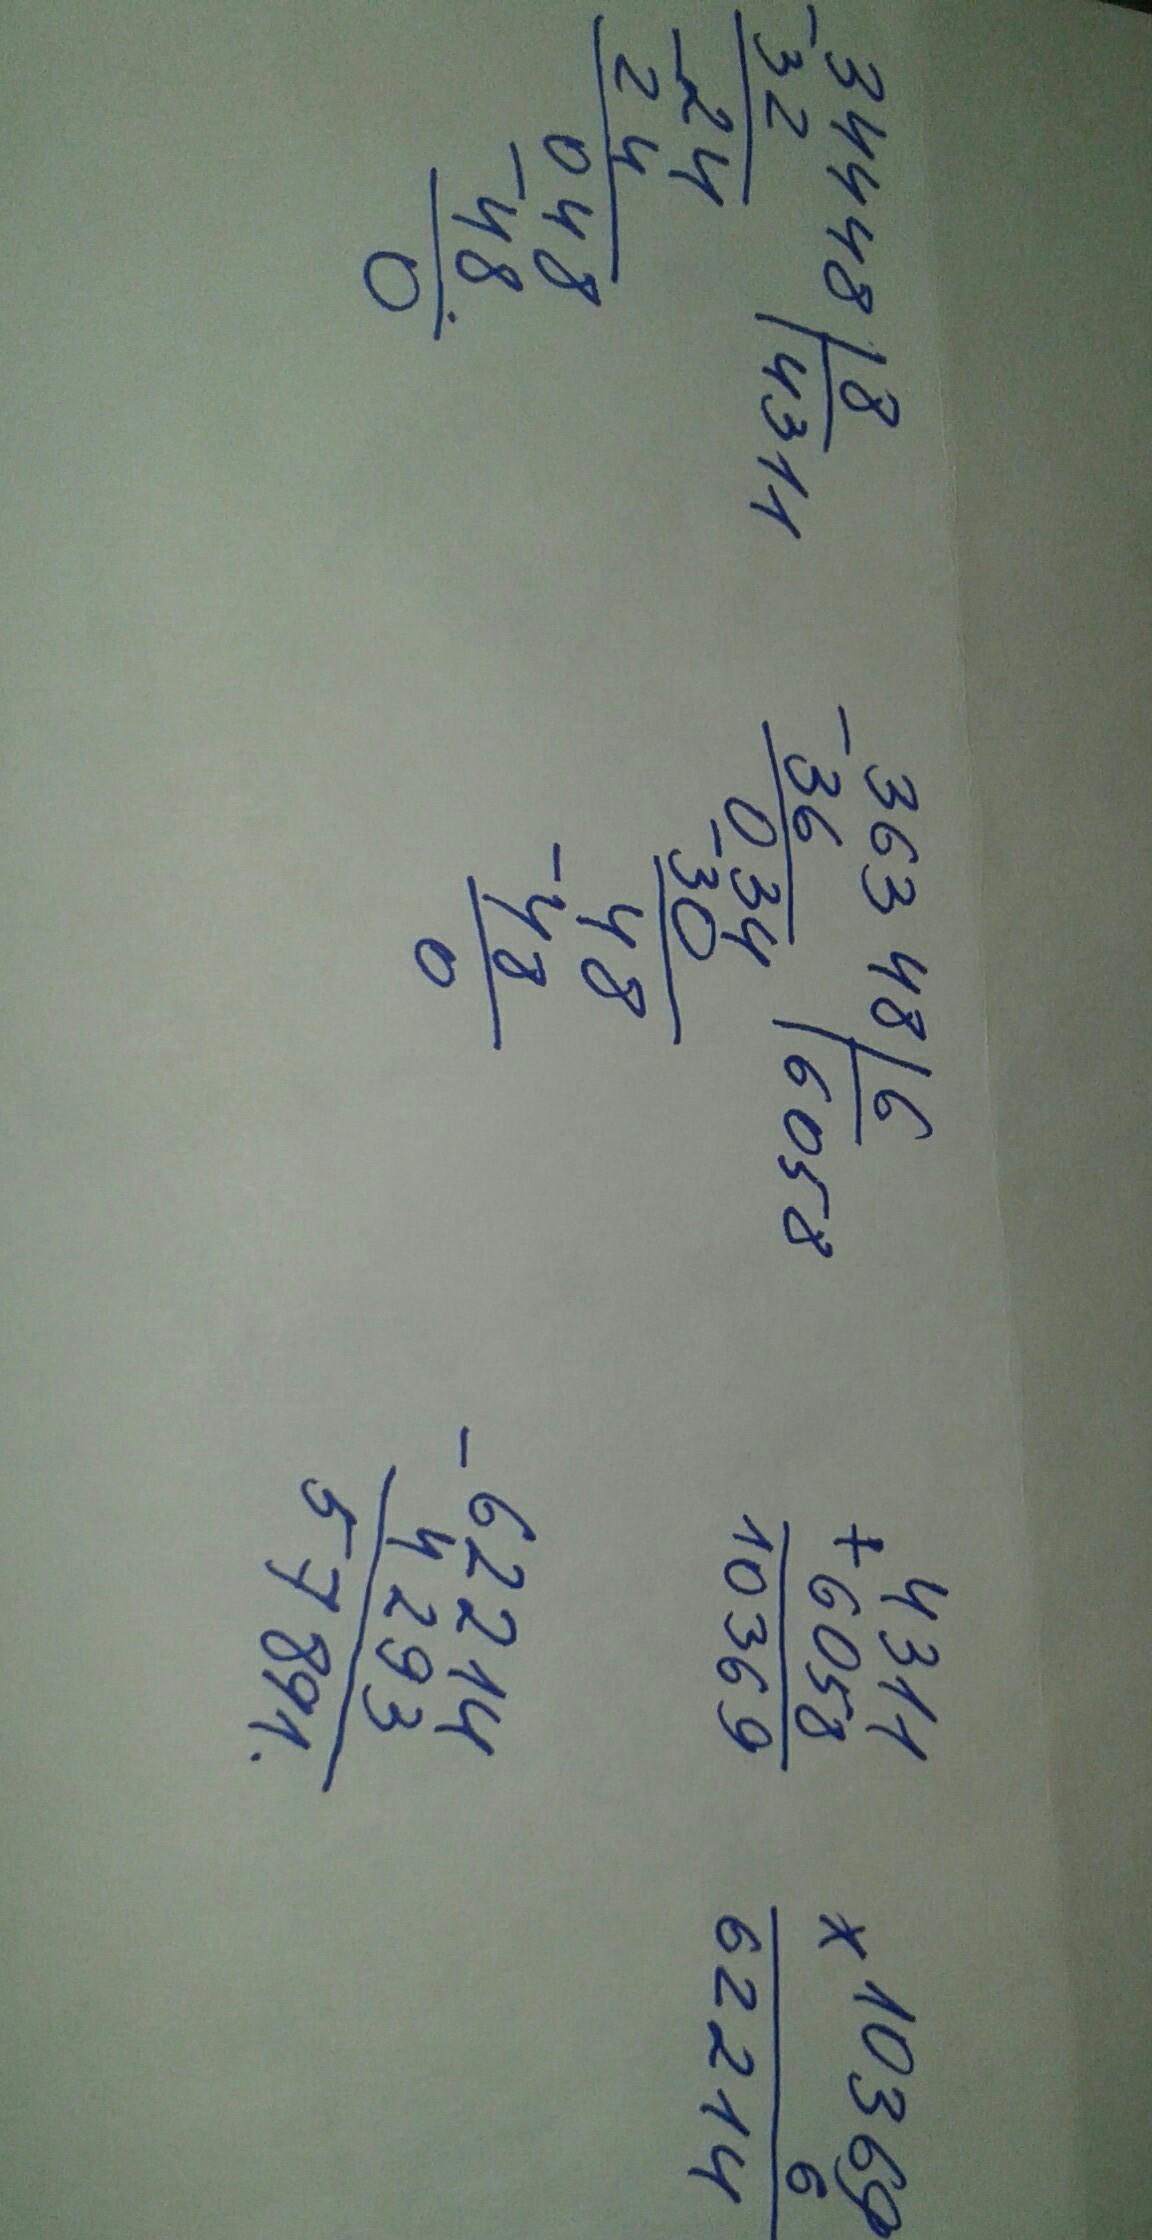 -34448|8
32 |4311
-24
24
048
-48.
0
-36348|6
36 |6058
034
-30
48
-48
0
4311
+6058
10369
×10369
6
62214
-62214
4293
57891.